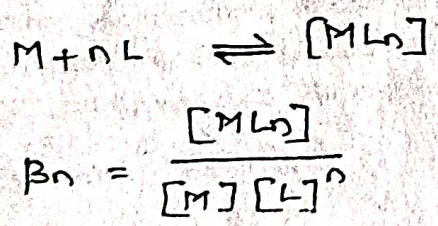 M + n L ⇌ [MLn]
βn = [MLn] / [M] [L]^n